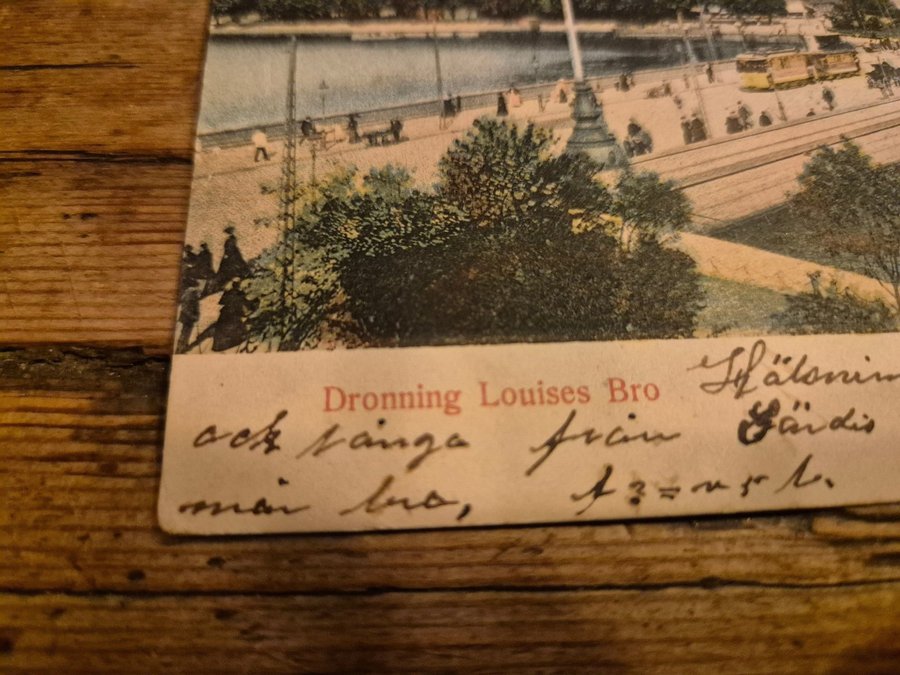 Dronning Louises Bro
Hälsnin
ock många från Gärdis
mår bra,